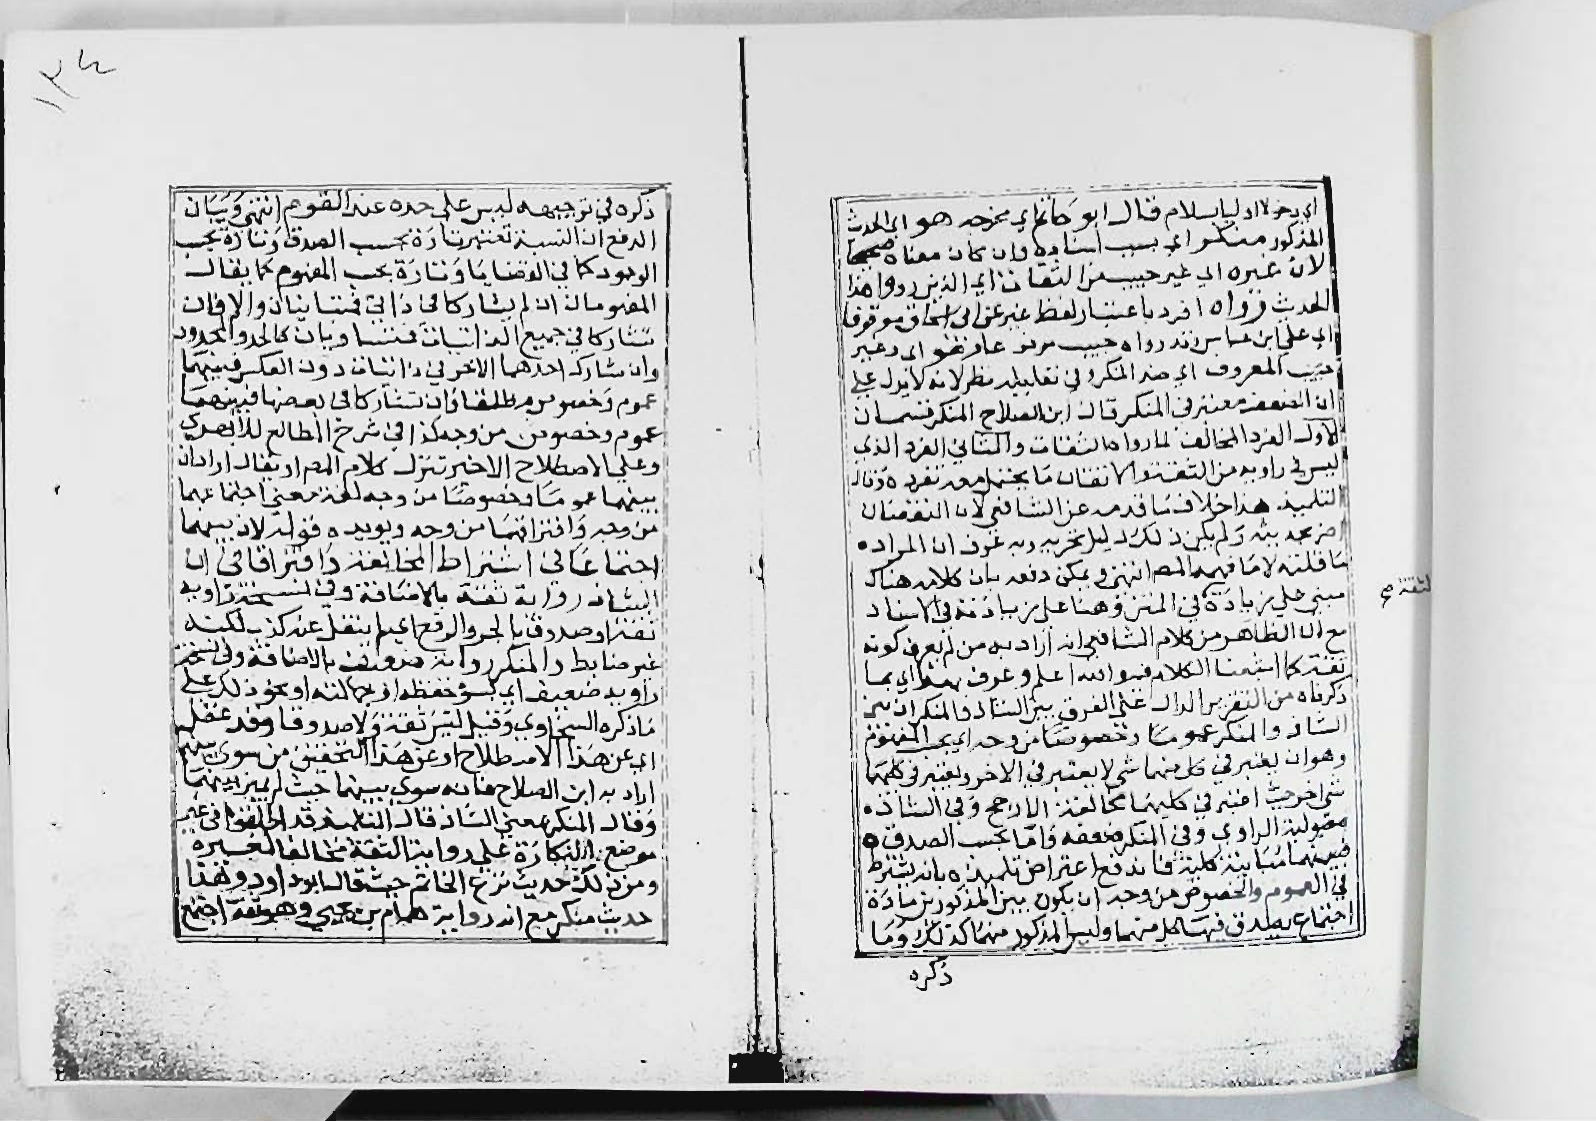 اي دخولا اوليا بسلام قال ابو حاتم اي مخرجه هو اي الحديث
المذكور منكر اي بسبب اسناده وان كان معناه صحيحا
لان غيره اي غير حبيب من الثقات اي الذين رووا هذا
الحديث رواه افرد باعتبار لفظ غير عن ابي اسحاق موقوفا
اي علي ابن عباس وقد رواه حبيب مرفوعا وهو اي وغير
حبيب المعروف اي ضد المنكر وفي تعليله نظر لانه لا يدل علي
ان الضعف معتبر في المنكر قال ابن الصلاح المنكر قسمان
الاول الفرد المخالف لما رواه الثقات والثاني الفرد الذي
ليس في راويه من الثقة والاتقان ما يحتمل معه تفرده وقال
التلميذ هذا خلاف ما قدمه عن الشافعي لان
بحديثه ولم يكن ذلك دليل وبه عرف ان المراد
ما قلته لا ما فهمه المص انتهي ويمكن دفعه بان كلامه هناك
مبني علي زيادة في المتن وهنا علي زيادته في الاسناد
مع ان الظاهر من كلام الشافعي انه اراد به من لم يعرف كونه
ثقة كما اشبعنا الكلام فيه والله اعلم وعرف بهذا اي بما
ذكرناه من التقرير الدال علي الفرق بين الشاذ والمنكر ان بين
الشاذ والمنكر عموما وخصوصا من وجه اي بحسب المفهوم
وهو ان يعتبر في كل منهما شي لا يعتبر في الاخر ويعتبر في كليهما
شي اخر حيث اعتبر في كليهما مخالفة الارجح وفي الشاذ
مقبولية الراوي وفي المنكر ضعفه واما بحسب الصدق
فبينهما مباينة كلية فاندفع اعتراض تلميذه بانه يشترط
في العموم والخصوص من وجه ان يكون بين المذكورين مادة
اجتماع يصدق فيها كل منهما وليس المذكور منهما كذلك وما
ذكره
الثقة صح
١٣٤
ذكره في توجيهه ليس علي حده عند القوم انتهي وبيان
الدفع ان النسبة تعتبر تارة بحسب الصدق وتارة بحسب
الوجود كما في القضايا وتارة بحسب المفهوم كما يقال
المفهومان ان لم يشاركا في ذاتي فمتباينان والا فان
تشاركا في جميع الذاتيات فمتساويان كالحد والمحدود
وان شارك احدهما الاخر في ذاتياته دون العكس فبينهما
عموم وخصوص مطلقا وان تشاركا في بعضها فبينهما
عموم وخصوص من وجه كذا في شرح المطالع للابهري
وعلي الاصطلاح الاخير تنزل كلام المص او يقال اراد ان
بينهما عموما وخصوصا من وجه لغة معني اجتماعهما
من وجه وافتراقهما من وجه ويويده قوله لان بينهما
اجتماعا في اشتراط المخالفة وافتراقا في ان
الشاذ رواية ثقة بالاضافة وفي نسخة راويه
ثقة او صدوق بالجر والرفع اي لم ينقل عنه كذب لكنه
غير ضابط والمنكر رواية ضعيف بالاضافة وفي نسخة
راويه ضعيف اي بسؤ حفظه او جهالته او نحو ذلك علي
ما ذكره السخاوي وقيل ليس ثقة ولا صدوقا وقد غفل
اي عن هذا الاصطلاح او عن هذا التحقيق من سوي بينهم
اراد به ابن الصلاح فانه سوي بينهما حيث لم يميز بينهما
وقال المنكر بمعني الشاذ قال التلميذ قد اطلقوا في غير
موضع النكارة علي رواية الثقة مخالفا لغيره
ومن ذلك حديث نزع الخاتم حيث قال ابو داود وهذا
حديث منكر مع انه رواية همام بن يحيي وهو ثقة احتج